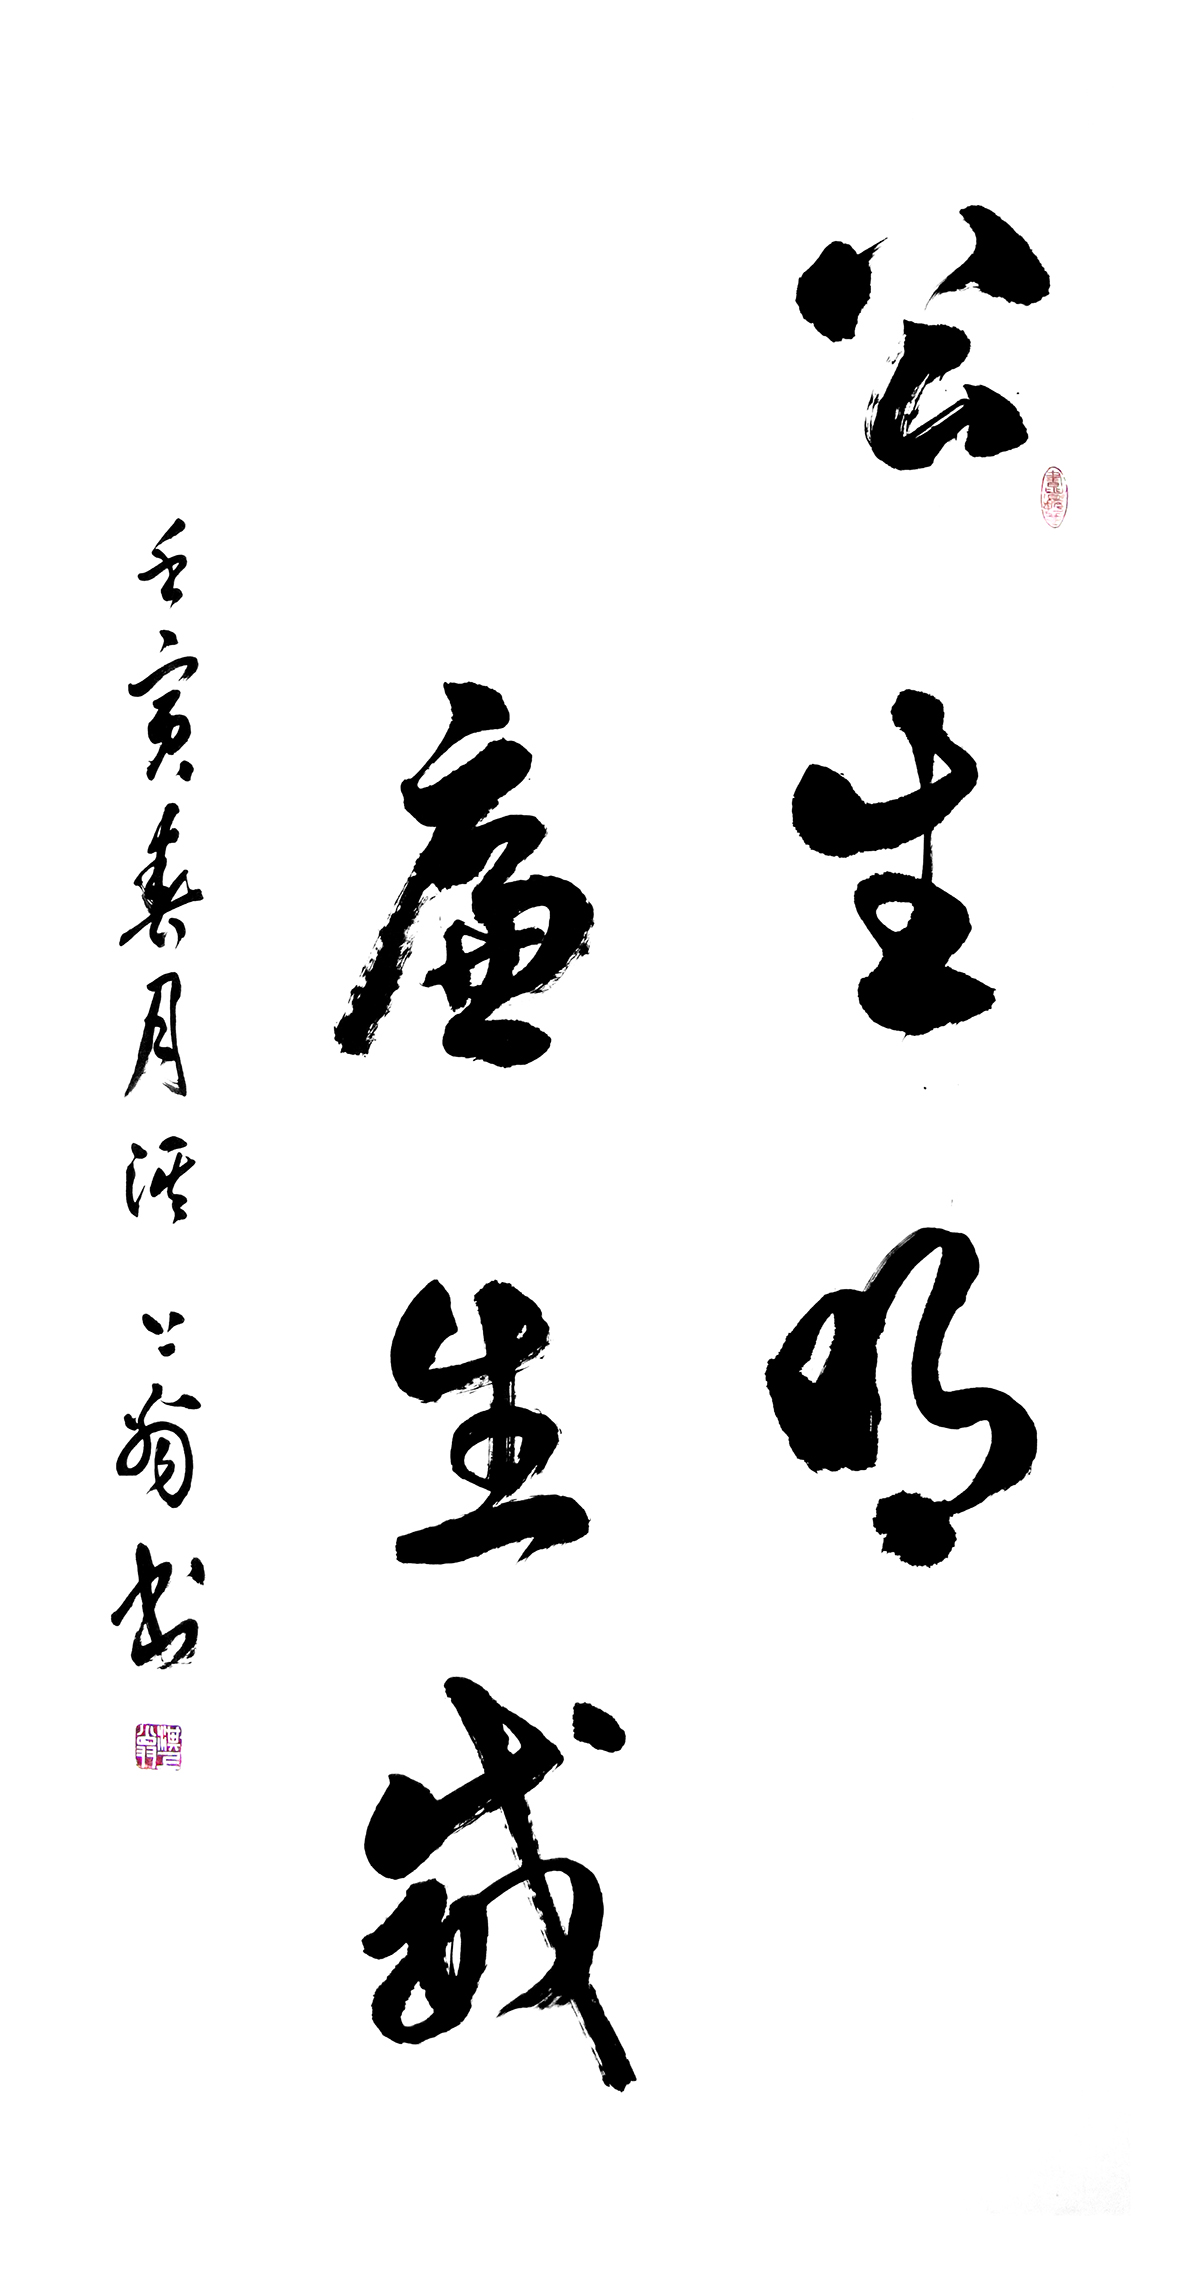 公生明
廉生威
壬寅春月翁书